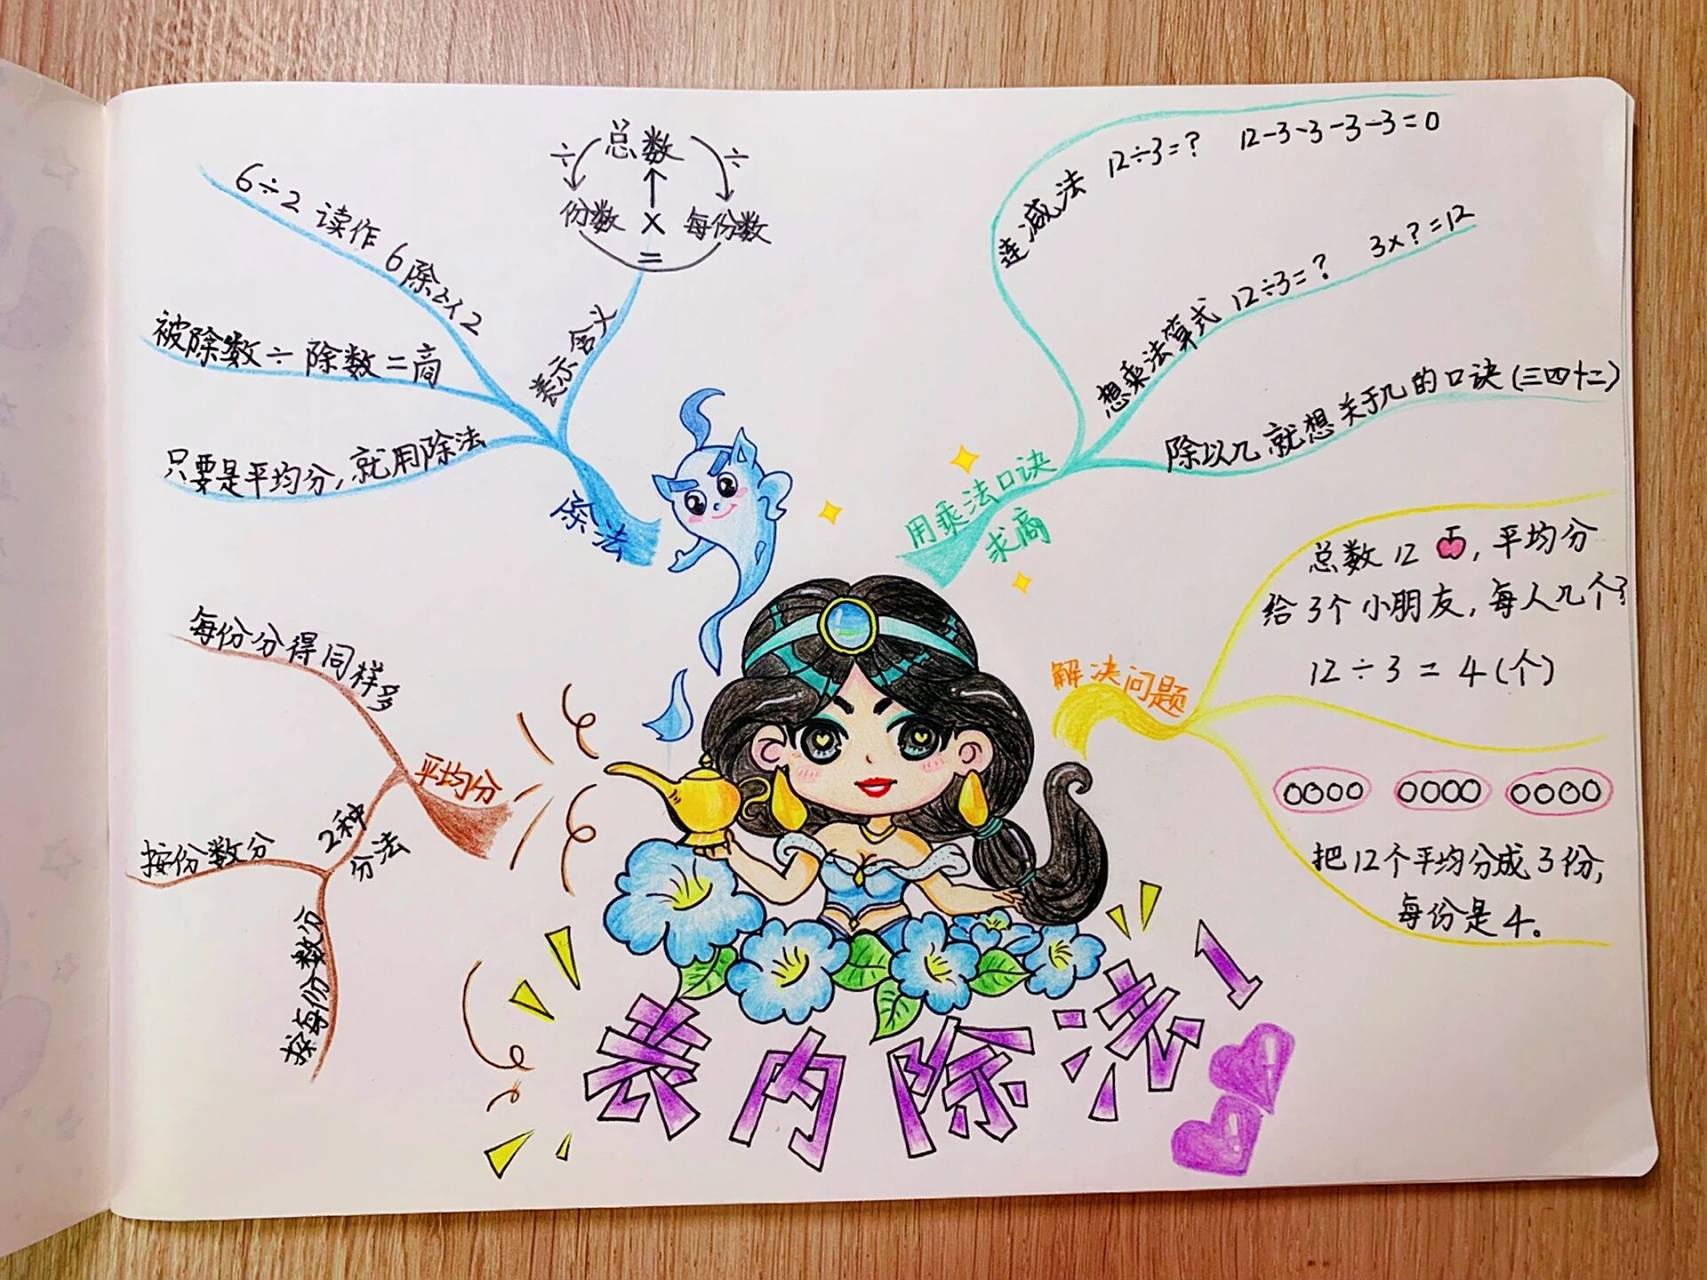 表内除法1
平均分
每份分得同样多
2种
分法
按份数分
按每份数分
除法
6÷2 读作 6除以2
被除数÷除数=商
只要是平均分,就用除法
表示含义
÷ 总数 ÷
份数 × 每份数
=
用乘法口诀
求商
连减法 12÷3=? 12-3-3-3-3=0
想乘法算式 12÷3=? 3×?=12
除以几就想关于几的口诀(三四十二)
解决问题
总数12 , 平均分
给3个小朋友,每人几个?
12÷3=4(个)
把12个平均分成3份,
每份是4。